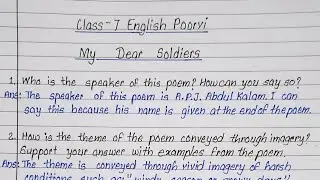 Class-7 English Poorvi
My Dear Soldiers
1. Who is the speaker of this poem? How can you say so?
Ans: The speaker of this poem is A.P.J. Abdul Kalam. I can
say this because his name is given at the end of the poem.
2. How is the theme of the poem conveyed through imagery?
Support your answer with examples from the poem.
Ans: The theme is conveyed through vivid imagery of harsh
conditions such as: "windy season or snowy days"